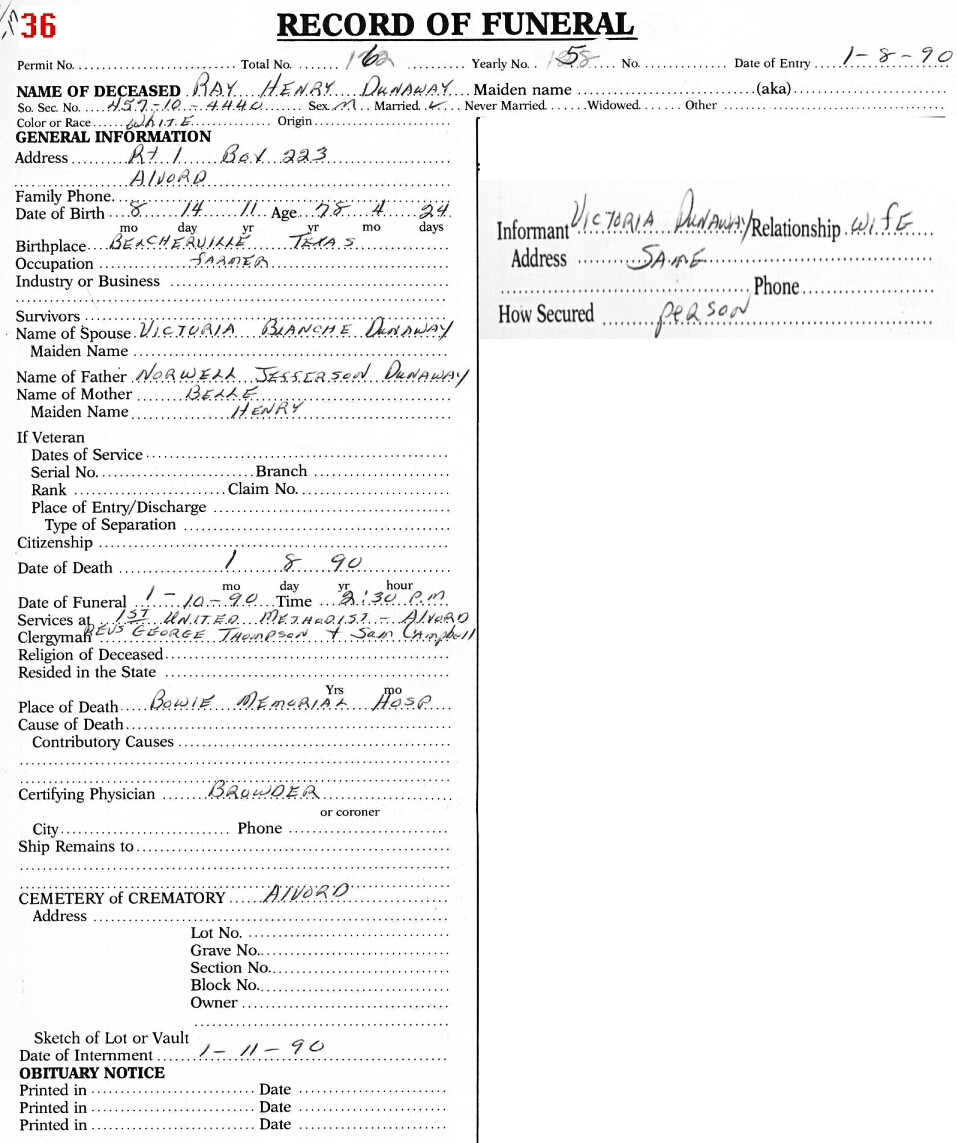 36
RECORD OF FUNERAL
Permit No. Total No. Yearly No. No. Date of Entry 1-8-90
NAME OF DECEASED RAY HENRY DUNAWAY Maiden name (aka)
So. Sec. No. 457-10-4440 Sex M Married ✓ Never Married Widowed Other
Color or Race WHITE Origin
GENERAL INFORMATION
Address Rt 1 Box 223
Alvord
Family Phone.
Date of Birth 8 14 11 Age 78 4 24
mo day yr yr mo days
Birthplace BELCHERVILLE TEXAS
Occupation FARMER
Industry or Business
Survivors
Name of Spouse VICTORIA BLANCHE DUNAWAY
Maiden Name
Name of Father NORWELL JEFFERSON DUNAWAY
Name of Mother BELLE
Maiden Name HENRY
If Veteran
Dates of Service
Serial No. Branch
Rank Claim No.
Place of Entry/Discharge
Type of Separation
Citizenship
Date of Death 1 8 90
mo day yr hour
Date of Funeral 1-10-90 Time 2:30 P.M
Services at 1ST UNITED METHODIST - Alvord
Clergyman REVS GEORGE THOMPSON + Sam Campbell
Religion of Deceased
Resided in the State
Yrs mo
Place of Death BOWIE MEMORIAL HOSP
Cause of Death
Contributory Causes
Certifying Physician BROWDER
or coroner
City Phone
Ship Remains to
CEMETERY of CREMATORY Alvord
Address
Lot No.
Grave No.
Section No.
Block No.
Owner
Sketch of Lot or Vault
Date of Internment 1-11-90
OBITUARY NOTICE
Printed in Date
Printed in Date
Printed in Date
Informant VICTORIA DUNAWAY/Relationship WIFE
Address SAME
Phone
How Secured PERSON